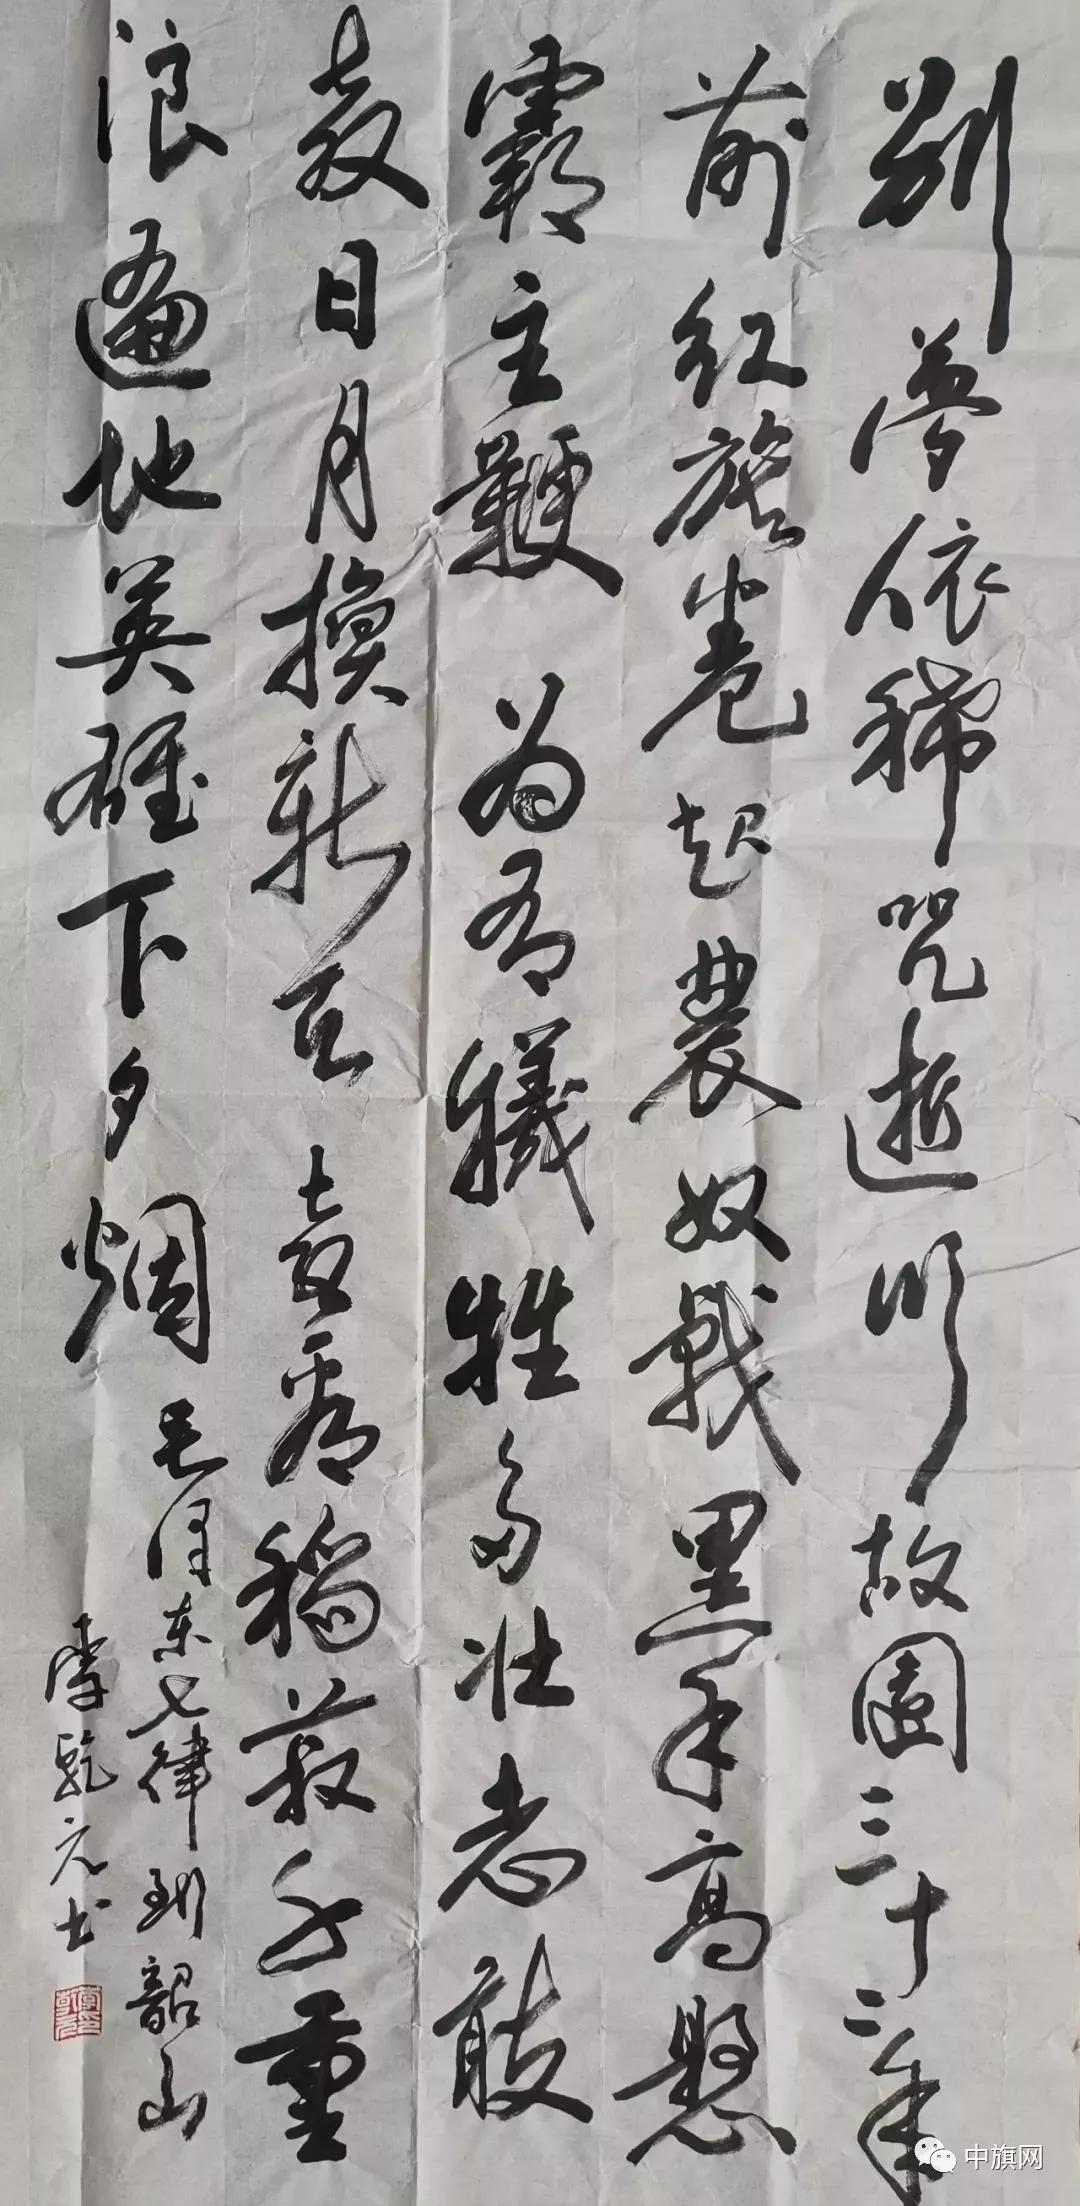 别夢依稀咒逝川故園三十二年
前红旗卷起農奴戟黑手高懸
霸主鞭为有犧牲多壮志敢
教日月换新天喜看稻菽千重
浪遍地英雄下夕烟
毛泽东七律到韶山
李乾元书
中旗网